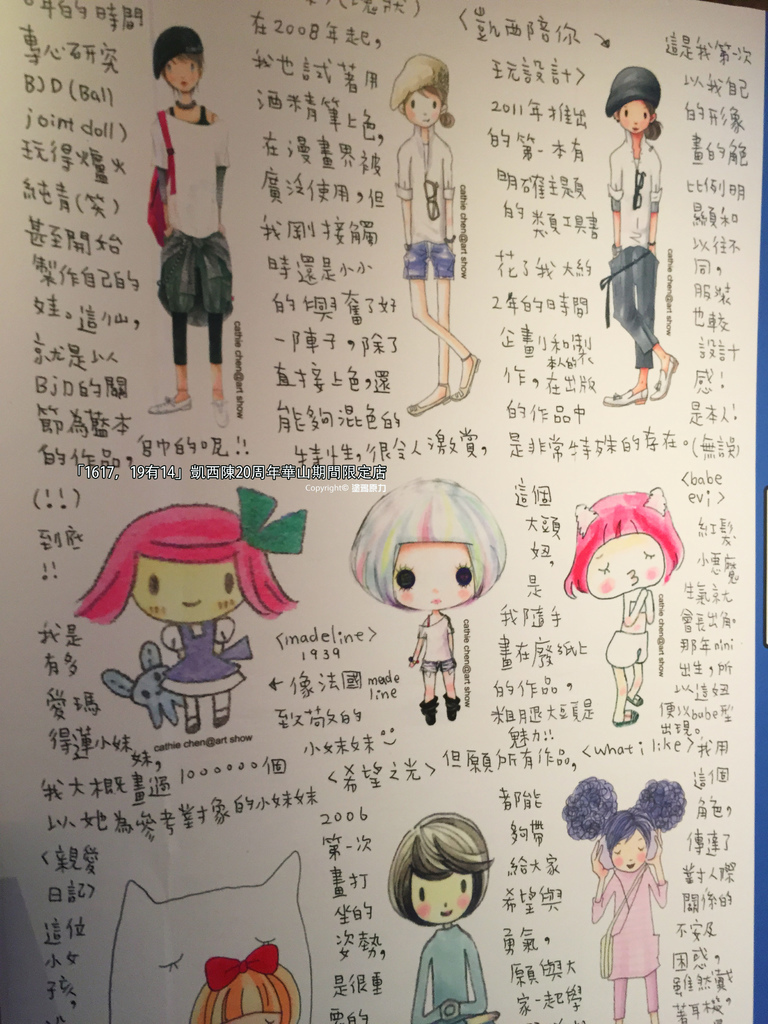 年的時間
專心研究
BJD(Ball
joint doll)
玩得爐火
純青(笑)
甚至開始
製作自己的
娃。這仙,
就是以
BJD的關
節為藍本
的作品,
在2008年起,
我也試著用
酒精筆上色,
在漫畫界被
廣泛使用,但
我剛接觸
時還是小小
的興奮了好
一陣子,除了
直接上色,還
能夠混色的
特性,很令人激賞,
<凱西陪你
玩設計>
2011年推出
的第一本有
明確主題
的類工具書
花了我大約
2年的時間
企畫和製
作,本人的
在出版
的作品中
是非常特殊的存在。(無誤)
這是我第一次
以我自己
的形象
畫的角色
比例明
顯和
以往不
同,
服裝
也較
設計
感!
是本人!
cathie chen@art show
cathie chen@art show
cathie chen@art show
「1617,19有14」凱西陳20周年華山期間限定店
Copyright©
(!!)
到底
!!
我是
有多
愛瑪
得蓮小妹
妹,
我大概畫過1000000個
以她為參考對象的小妹妹
cathie chen@art show
<madeline>
1939
←像法國made
line
致敬的
小妹妹
cathie chen@art show
這個
大頭
妞,
是
我隨手
畫在廢紙上
的作品,
粗腿大頭是
魅力!!
cathie chen@art show
<babe
evi>
紅髮
小惡魔
生氣就
會長出角。
那年nini
出生,所
以這妞
便以babe型
出現。
<親愛
日記>
這位
小女
孩,
<希望之光>
2006
第一次
畫打
坐的
姿勢,
是很重
要的
但願所有作品,
都能
夠帶
給大家
希望與
勇氣,
願與大
家一起學
<what i like>
我用
這個
角色,
傳達了
對人際
關係的
不安及
困惑,
雖然戴
著耳機,